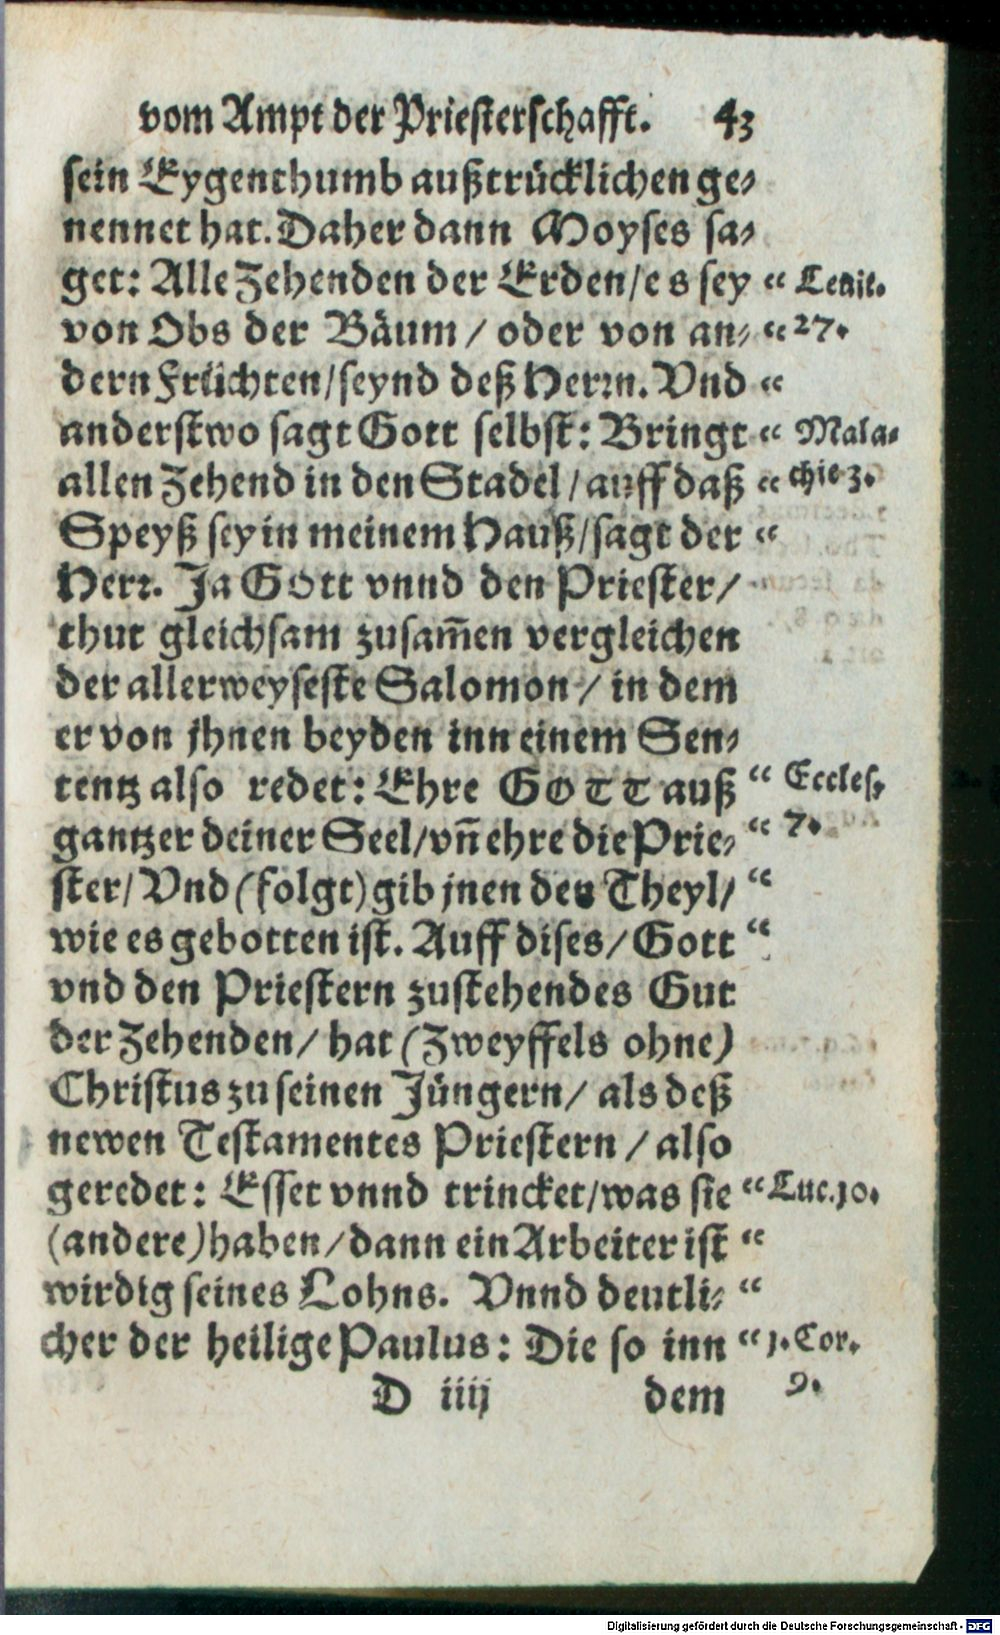 vom Ampt der Priesterschafft. 43
sein Eygenthumb außtrücklichen ge⸗
nennet hat. Daher dann Moyses sa⸗
get: Alle Zehenden der Erden/es sey “ Leuit.
von Obs der Bäum / oder von an⸗ “ 27.
dern Früchten/seynd deß Herrn. Vnd “
anderstwo sagt Gott selbst: Bringt “ Mala⸗
allen Zehend in den Stadel / auff daß “ chie 3.
Speyß sey in meinem Hauß/sagt der “
Herr. Ja GOtt vnnd den Priester/
thut gleichsam zusam̄en vergleichen
der allerweyseste Salomon / in dem
er von jhnen beyden inn einem Sen⸗
tentz also redet: Ehre GOTT auß “ Eccles.
gantzer deiner Seel/vn̄ ehre die Prie⸗ “ 7.
ster/ Vnd (folgt) gib jnen den Theyl/ “
wie es gebotten ist. Auff dises/ Gott “
vnd den Priestern zustehendes Gut
der Zehenden/ hat (Zweyffels ohne)
Christus zu seinen Jüngern/ als deß
newen Testamentes Priestern / also
geredet: Esset vnnd trincket/was sie “ Luc. 10.
(andere) haben/dann ein Arbeiter ist “
wirdig seines Lohns. Vnnd deutli⸗ “
cher der heilige Paulus: Die so inn “ 1. Cor.
D iiij dem 9.
Digitalisierung gefördert durch die Deutsche Forschungsgemeinschaft - DFG